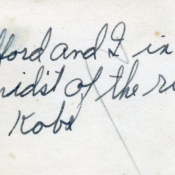 fford and I in
midst of the ri
Kobe